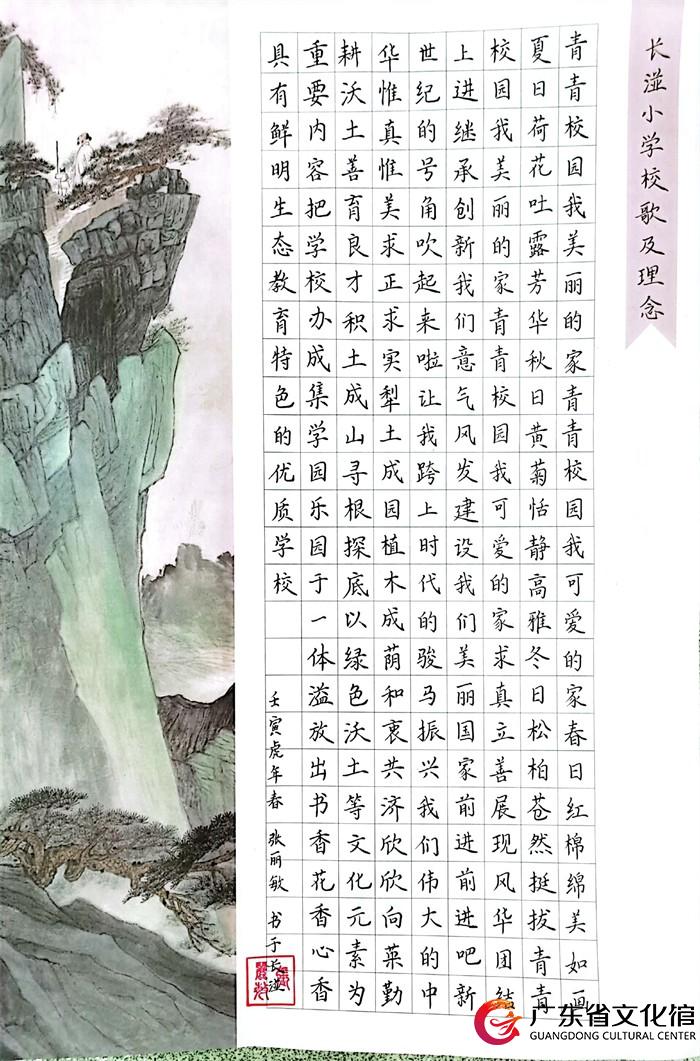 长湴小学校歌及理念
青青校园我美丽的家青青校园我可爱的家春日红棉绵美如画
夏日荷花吐露芳华秋日黄菊恬静高雅冬日松柏苍然挺拔青青
校园我美丽的家青青校园我可爱的家求真立善展现风华团结
上进继承创新我们意气风发建设我们美丽国家前进前进吧新
世纪的号角吹起来啦让我跨上时代的骏马振兴我们伟大的中
华惟真惟美求正求实犁土成园植木成荫和衷共济欣欣向菜勤
耕沃土善育良才积土成山寻根探底以绿色沃土等文化元素为
重要内容把学校办成集学园乐园于一体溢放出书香花香心香
具有鲜明生态教育特色的优质学校
壬寅虎年春 张丽敏 书于长湴
广东省文化馆
GUANGDONG CULTURAL CENTER